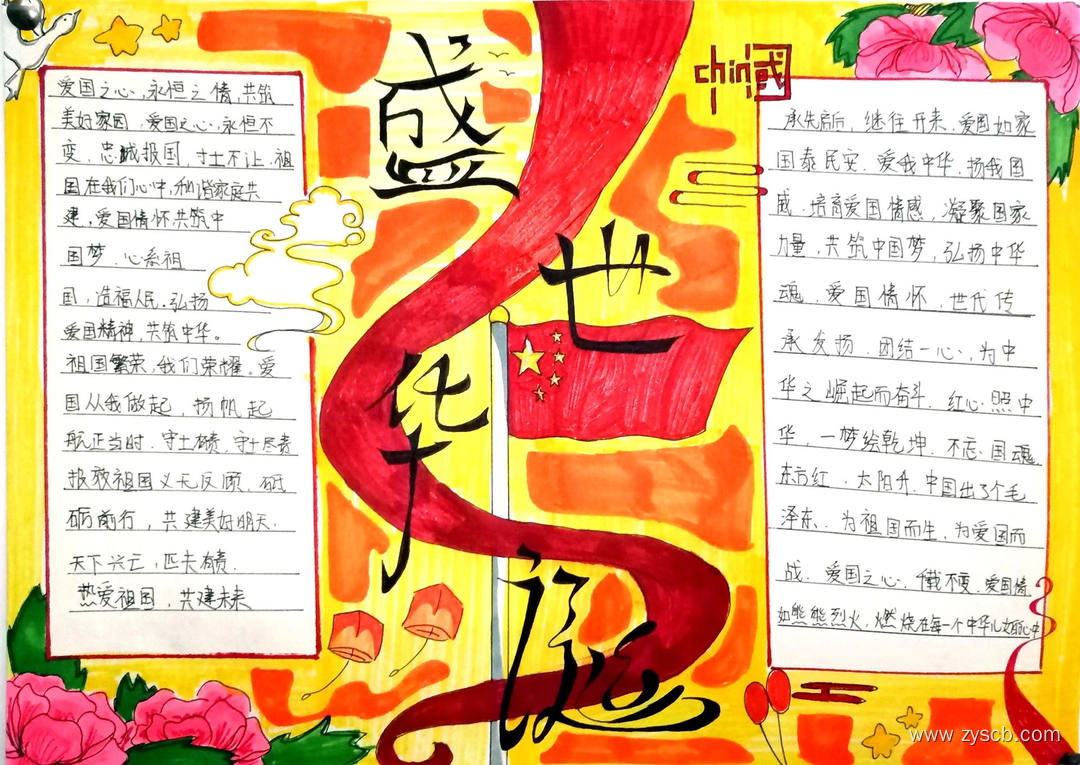 盛世华诞
chin國
爱国之心,永恒之情,共筑
美好家园,爱国之心,永恒不
变,忠诚报国,寸土不让,祖
国在我们心中,和谐家庭共
建,爱国情怀共筑中
国梦,心系祖
国,造福人民,弘扬
爱国精神,共筑中华。
祖国繁荣,我们荣耀,爱
国从我做起,扬帆起
航正当时,守土有责,守土尽责
报效祖国义无反顾,砥
砺前行,共建美好明天.
天下兴亡,匹夫有责.
热爱祖国,共建未来
承先启后,继往开来,爱国如家
国泰民安,爱我中华,扬我国
威,培育爱国情感,凝聚国家
力量,共筑中国梦,弘扬中华
魂,爱国情怀,世代传
承发扬,团结一心,为中
华之崛起而奋斗.红心照中
华,一梦绘乾坤,不忘国魂,
东方红,太阳升,中国出了个毛
泽东,为祖国而生,为爱国而
战,爱国之心,不变,爱国情
如熊熊烈火,燃烧在每一个中华儿女的心中
www.zyscb.com